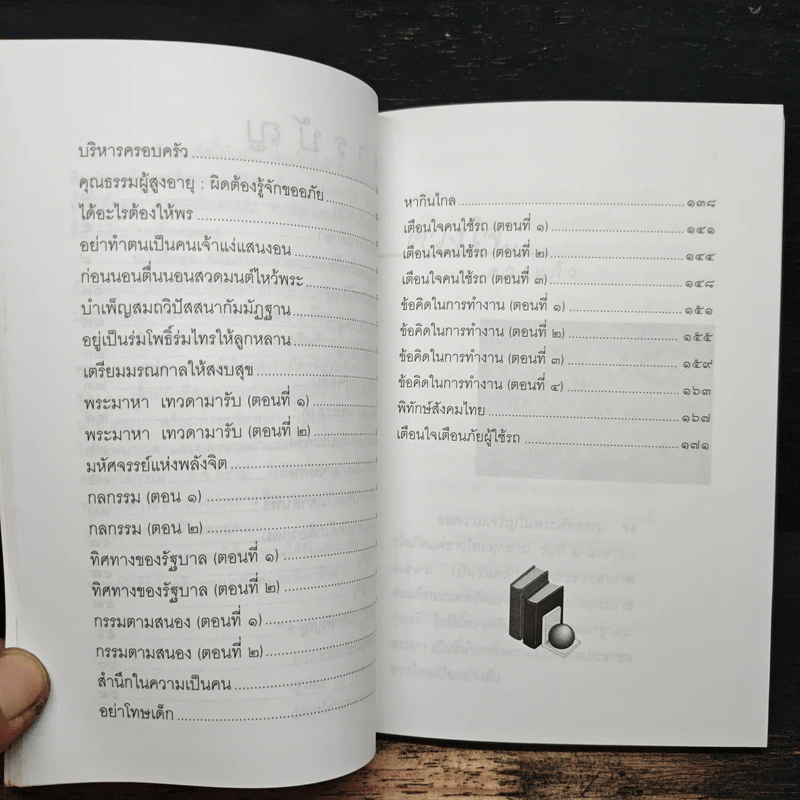 บริหารครอบครัว
คุณธรรมผู้สูงอายุ : ผิดต้องรู้จักขออภัย
ได้อะไรต้องให้พร
อย่าทำตนเป็นคนเจ้าแง่แสนงอน
ก่อนนอนตื่นนอนสวดมนต์ไหว้พระ
บำเพ็ญสมถวิปัสสนากัมมัฏฐาน
อยู่เป็นร่มโพธิ์ร่มไทรให้ลูกหลาน
เตรียมมรณกาลให้สงบสุข
พระมาหา เทวดามารับ (ตอนที่ ๑)
พระมาหา เทวดามารับ (ตอนที่ ๒)
มหัศจรรย์แห่งพลังจิต
กลกรรม (ตอน ๑)
กลกรรม (ตอน ๒)
ทิศทางของรัฐบาล (ตอนที่ ๑)
ทิศทางของรัฐบาล (ตอนที่ ๒)
กรรมตามสนอง (ตอนที่ ๑)
กรรมตามสนอง (ตอนที่ ๒)
สำนึกในความเป็นคน
อย่าโทษเด็ก
หากินไกล ๑๓๘
เตือนใจคนใช้รถ (ตอนที่ ๑) ๑๔๑
เตือนใจคนใช้รถ (ตอนที่ ๒) ๑๔๔
เตือนใจคนใช้รถ (ตอนที่ ๓) ๑๔๘
ข้อคิดในการทำงาน (ตอนที่ ๑) ๑๕๑
ข้อคิดในการทำงาน (ตอนที่ ๒) ๑๕๕
ข้อคิดในการทำงาน (ตอนที่ ๓) ๑๕๙
ข้อคิดในการทำงาน (ตอนที่ ๔) ๑๖๓
พิทักษ์สังคมไทย ๑๖๗
เตือนใจเตือนภัยผู้ใช้รถ ๑๗๑